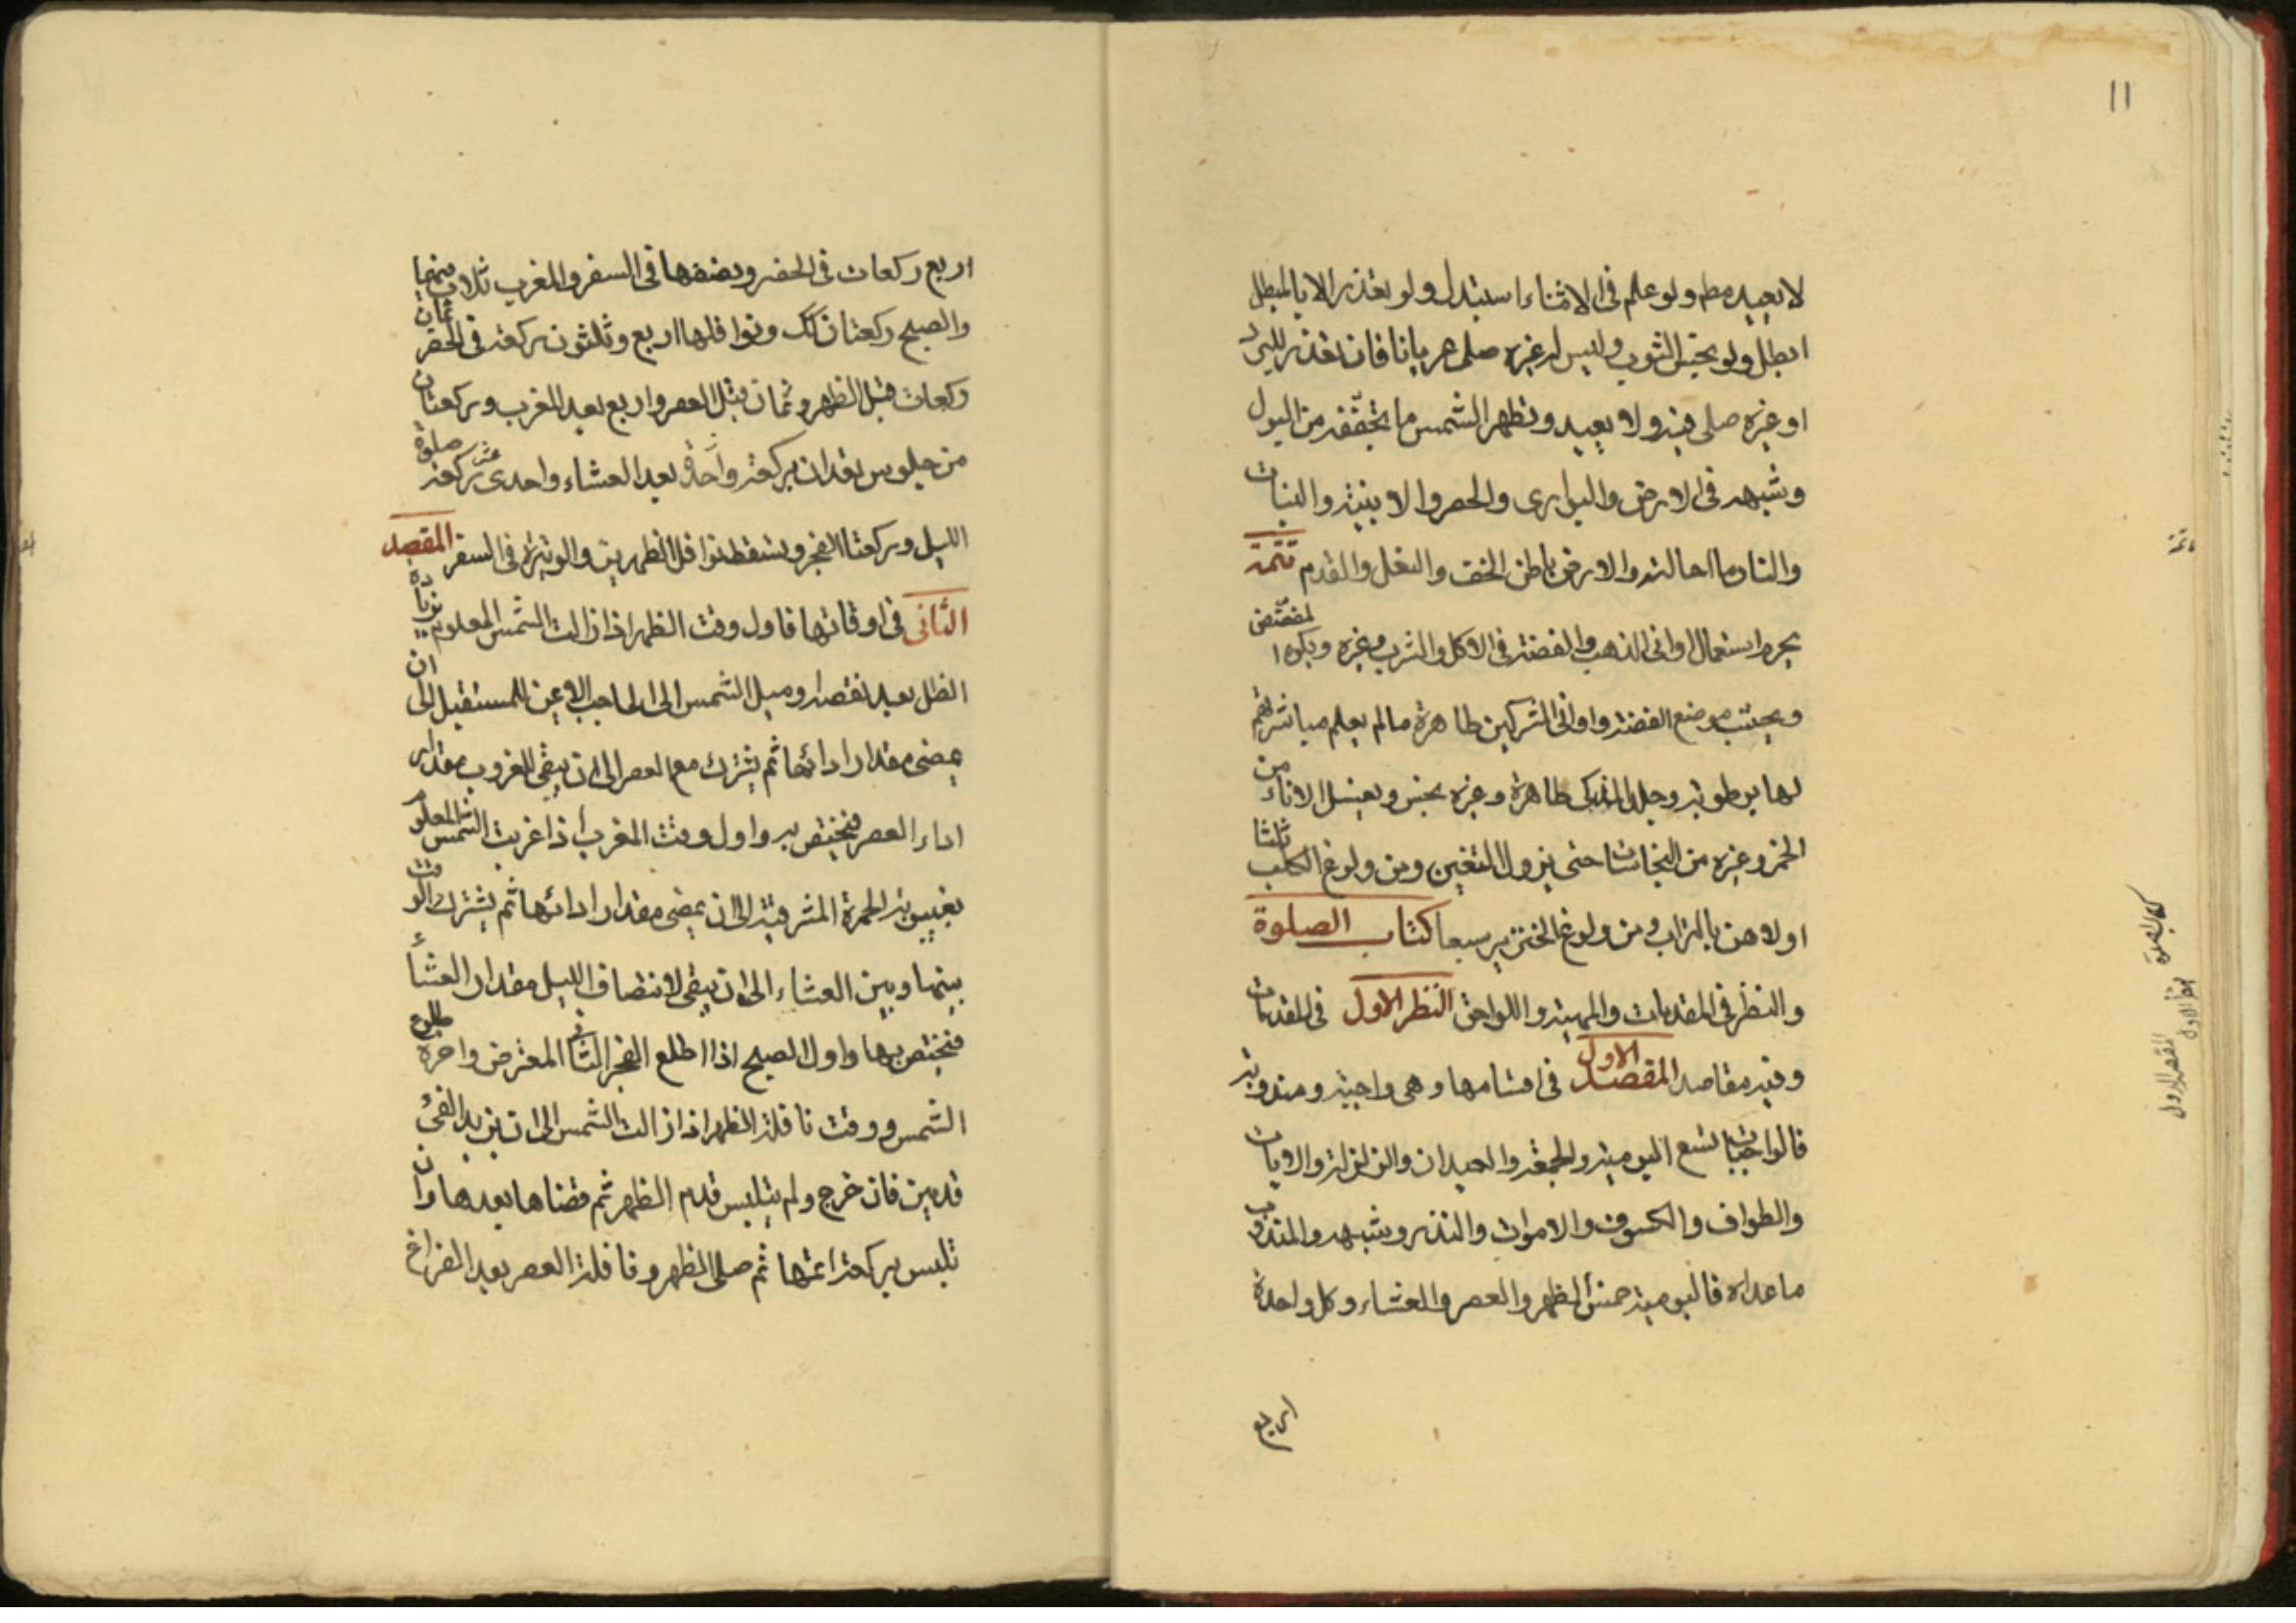 11
لا يعيد مطم ولو علم فى الاثناء استبدل ولو تعذر الا بالمبطل
ابطل ولو نجس الثوب وليس له غيره صلى عريانا فان تعذر للبرد
او غيره صلى فيه ولا يعيد وتطهر الشمس ما تجففه من البول
وشبهه فى الارض والبوارى والحصر والابنية والنبات
والنار ما احالته والارض باطن الخف والنعل والقدم تتمة
يحرم استعمال اوانى الذهب والفضة فى الاكل والشرب وغيره ويكره المفضض
ويجتنب موضع الفضة واوانى المشركين طاهرة ما لم يعلم مباشرتهم
لها برطوبة وجلد المذكى طاهرة وغيره نجس ويغسل الاناء من
الخمر وغيره من النجاسات حتى يزول العين ومن ولوغ الكلب ثلثا
اولاهن بالتراب ومن ولوغ الخنزير سبعا كتاب الصلوة
والنظر فى المقدمات والمهية واللواحق النظر الاول فى المقدمات
وفيه مقاصد المقصد الاول فى اقسامها وهى واجبة ومندوبة
فالواجبات تسع اليومية والجمعة والعيدان والزلزلة والايات
والطواف والكسوف والاموات والنذر وشبهه والمندوب
ما عداه فاليومية خمس الظهر والعصر والعشاء وكل واحدة
اربع
تتمة
كتاب الصلوة
نظر الاول
المقصد الاول
اربع ركعات فى الحضر ونصفها فى السفر والمغرب ثلاث فيهما
والصبح ركعتان كك ونوافلها اربع وثلثون ركعة فى الحضر ثمان
ركعات قبل الظهر وثمان قبل العصر واربع بعد المغرب وركعتان
من جلوس تعدان بركعة واحدة بعد العشاء واحدى عشر ركعة صلوة
الليل وركعتا الفجر ويسقط نوافل الظهرين والوتيرة فى السفر المقصد
الثانى فى اوقاتها فاول وقت الظهر اذا زالت الشمس المعلوم بزيادة
الظل بعد نقصه وميل الشمس الى الحاجب الايمن للمستقبل الى ان
يمضى مقدار ادائها ثم يشترك مع العصر الى ان يبقى للغروب مقدار
اداء العصر فيختص به واول وقت المغرب اذا غربت الشمس المعلوم
بغيبوبة الحمرة المشرقية الى ان يمضى مقدار ادائها ثم يشترك الوقت
بينها وبين العشاء الى ان يبقى لانتصاف الليل مقدار العشاء
فيختص بها واول الصبح اذا طلع الفجر الثانى المعترض واخره طلوع
الشمس ووقت نافلة الظهر اذا زالت الشمس الى ان يزيد الفئ
قدمين فان خرج ولم يتلبس قدم الظهر ثم قضاها بعدها وان
تلبس بركعة اتمها ثم صلى الظهر ونافلة العصر بعد الفراغ